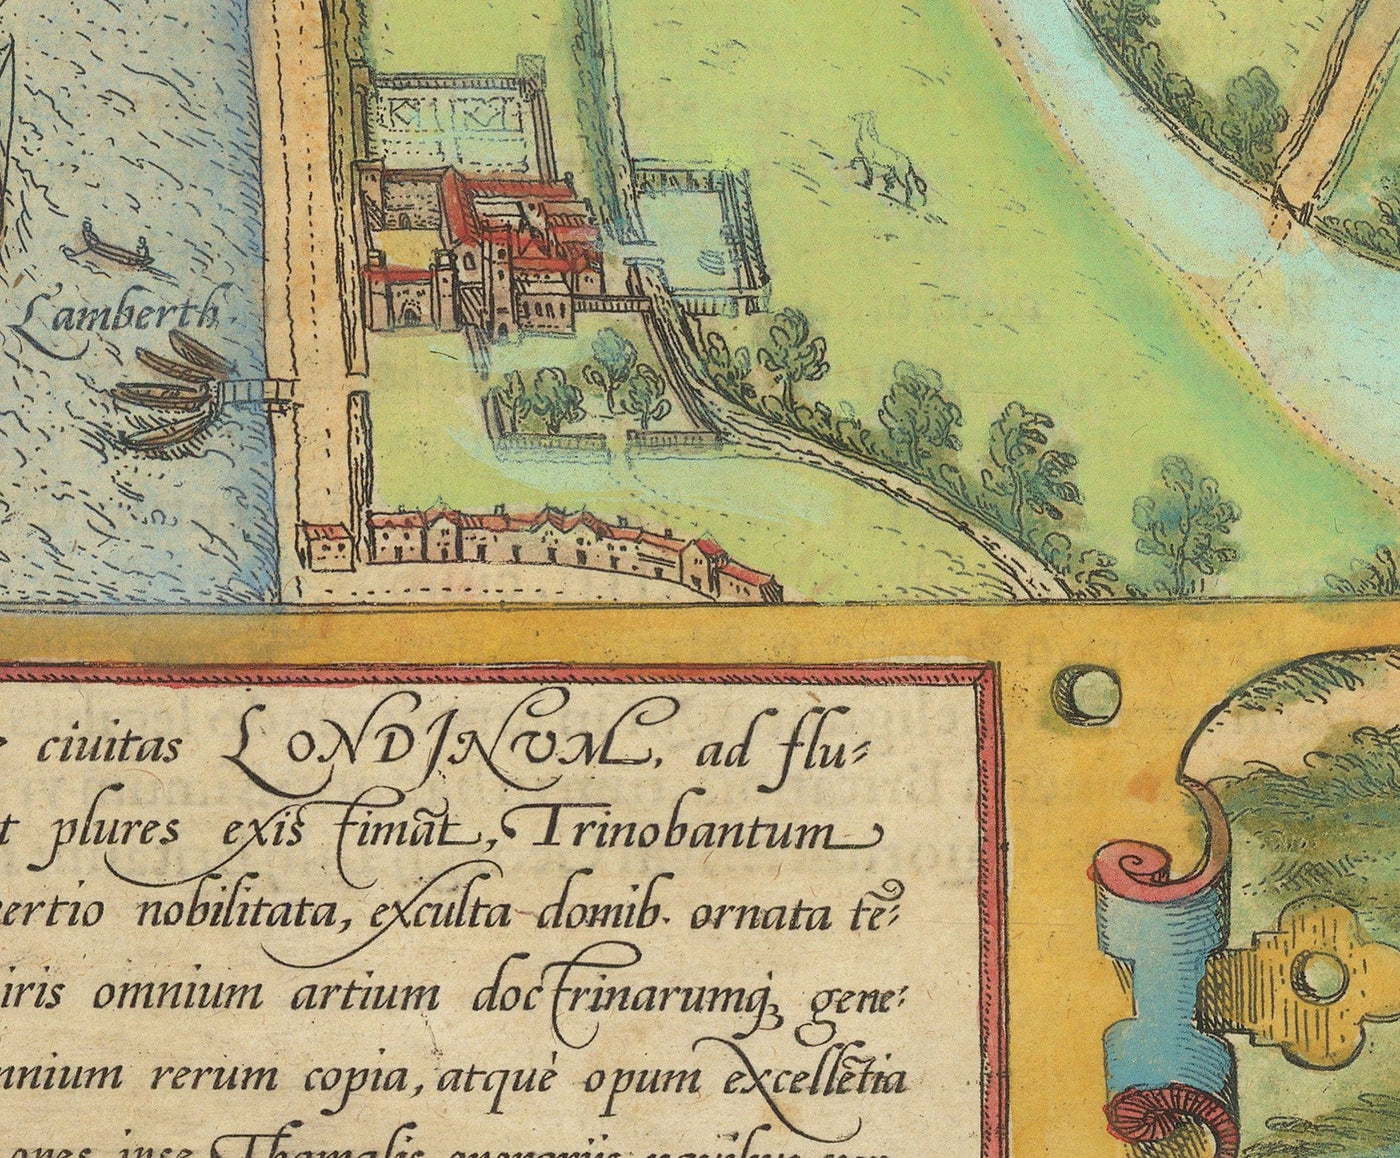 Lamberth.
ciuitas LONDINUM, ad flu⸗
plures existimāt, Trinobantum
nobilitata, exculta domib. ornata tē⸗
omnium artium doctrinarumq́; gene⸗
rerum copia, atque opum excellētia
ipse Thamesis